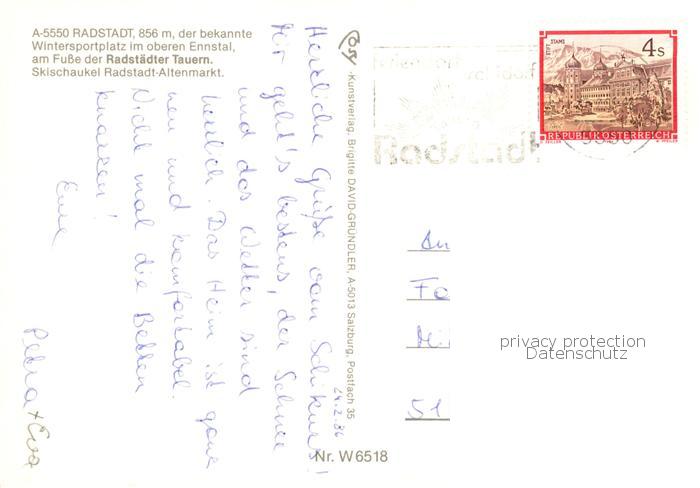 A-5550 RADSTADT, 856 m, der bekannte
Wintersportplatz im oberen Ennstal,
am Fuße der Radstädter Tauern.
Skischaukel Radstadt-Altenmarkt.
Herzliche Grüße vom Schikurs!
Mir geht's bestens, der Schnee
und das Wetter sind
herrlich. Das Heim ist ganz
neu und komfortabel.
Nicht mal die Betten
knarren!
Eure
Petra + Eva
24.2.86
Rosy -Kunstverlag, Brigitte DAVID-GRÜNDLER, A-5013 Salzburg, Postfach 35
Nr. W6518
Radstadt
STIFT STAMS
4 S
REPUBLIK ÖSTERREICH
An
Fa
51
privacy protection
Datenschutz